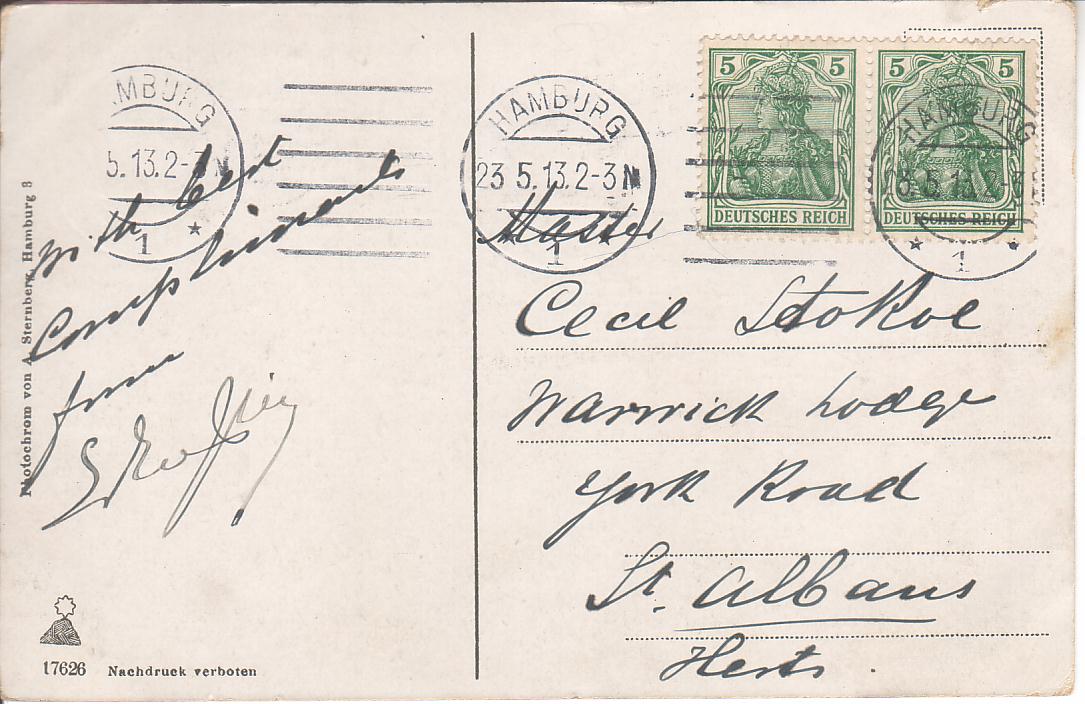 HAMBURG
5.13.2-3N
1
HAMBURG
23.5.13.2-3N
1
5 5
DEUTSCHES REICH
5 5
DEUTSCHES REICH
HAMBURG
23.5.13.2-3
1
with best
Compliments
from
Master
Cecil Stokoe
Warwick Lodge
York Road
St. Albans
Herts.
Photochrom von A. Sternberg, Hamburg 8
17626 Nachdruck verboten